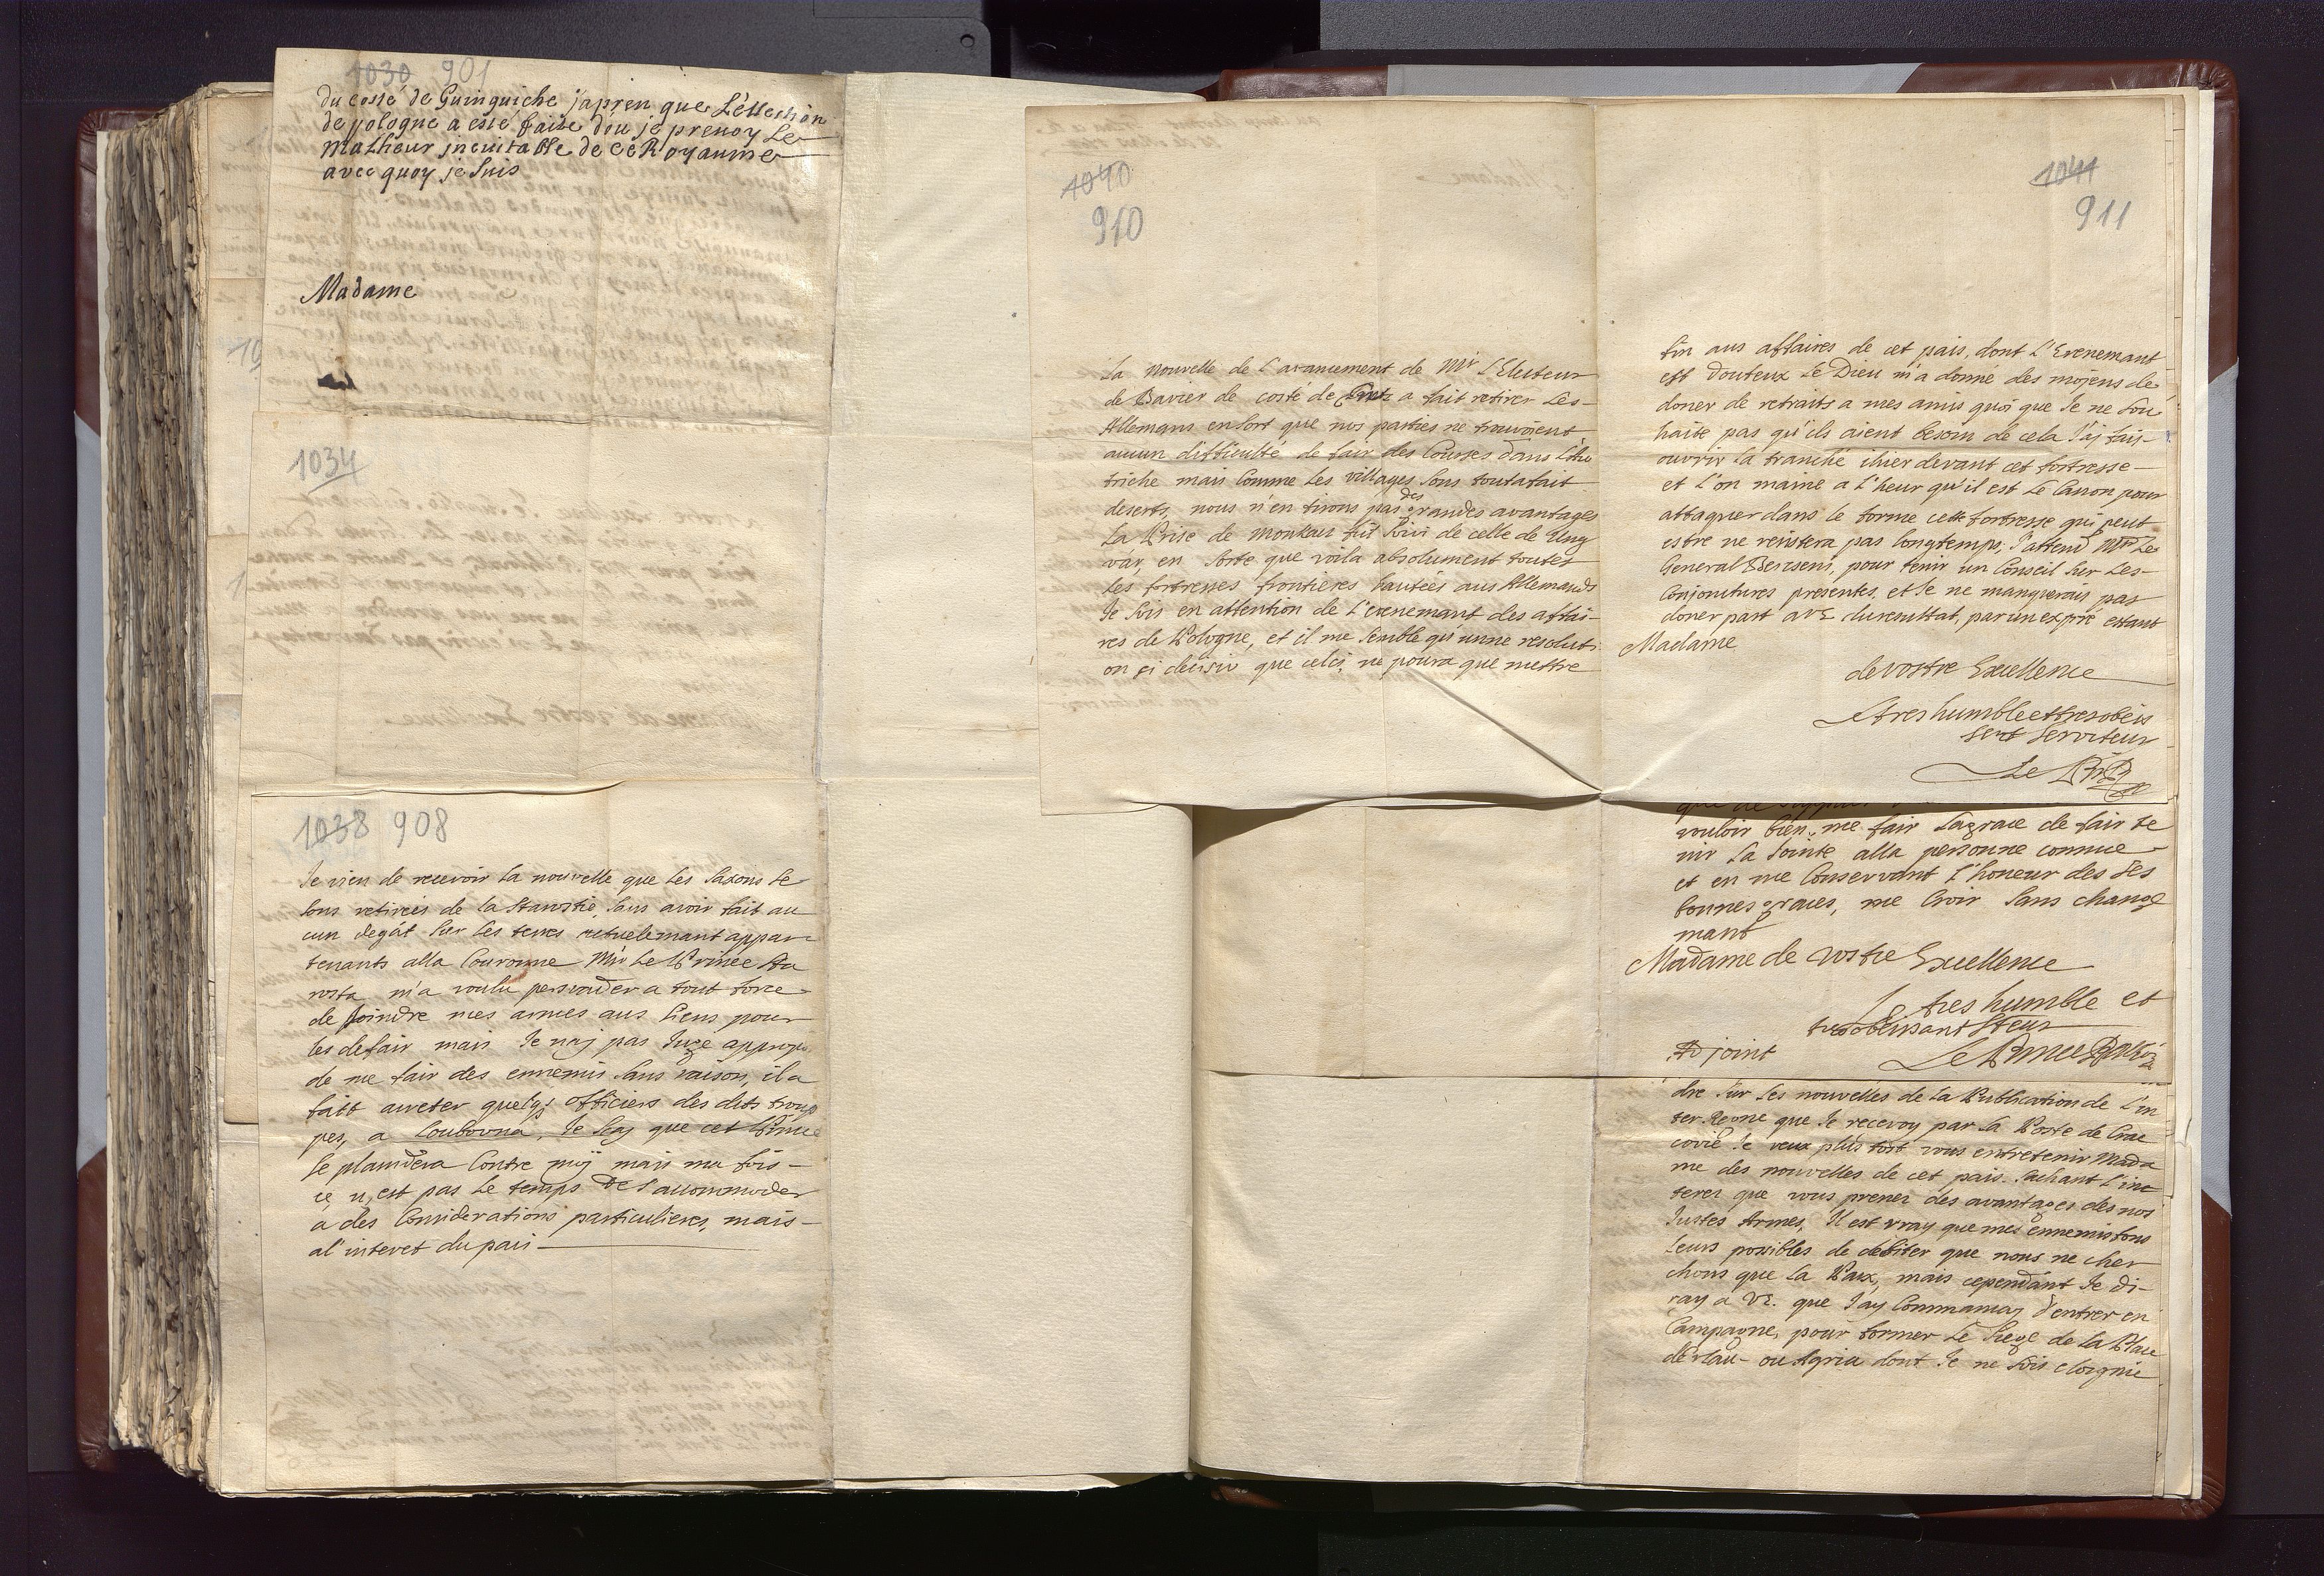 1030 901
du costé de Guinguiche japren que L'éllection
de pologne a esté faite d'ou je prenoy Le
malheur jneuitable de ce Royaume
avec quoy je suis
Madame
1034
1038 908
Je vien de recevoir la nouvelle que les Saxons se
sons retireés de la Starostie, sans avoir fait au
cun degât sur les terres actuelemant appar
tenants alla Couronne Mr Le Prince
m'a voulu persuader a tout force
de joindre mes armes aus siens pour
les defair mais Je n'aj pas Juge appropo
de me fair des ennemis sans raison, il a
fait arreter quelqs officiers des dits troup
pes, a Loubovna, Je scaj que cet Prince
se plaindera Contre moÿ mais ma fois
ce n'est pas le temps de s'accommoder
a des Considerations particulieres, mais
a l'interet du pais
1040
910
La nouvelle de l'avancement de Mr L'Electeur
de Bavier de costé de a fait retirer Les
Allemans en sort que nos parties ne trouvoient
aucun difficulté de fair des Courses dans L'Au
triche mais Comme les villages sons toutafait
deserts, nous n'en tirons pas des grandes avantages
La Prise de Monkats fut suivi de celle de Ung
vár, en sorte que voila absolument toutes
les fortresses frontieres hautées aus Allemands
Je suis en attention de l'evenemant des affai-
res de Pologne, et il me semble qu'unne resoluti
on si decisiv que celci, ne poura que mettre
1041
911
fin aus affaires de cet pais, dont L'Evenemant
est douteux Le Dieu m'a donné des mojens de
doner de retraits a mes amis quoi que Je ne sou
haite pas qu'ils aient besoin de cela J'aj fais
ouvrir la tranché ihier devant cet fortresse
et l'on maine a l'heur qu'il est Le Canon pour
attaquer dans le forme cette fortresse qui peut
estre ne resistera pas longtemps, J'attend Mr Le
General Bercseni, pour tenir un Conseil sur Les
Conjonctures presentes, et Je ne manquerais pas
doner part a VE du resultat, par un exprie estant
Madame
de vostre Excellence
Le tres humble et tres obeis
sent serviteur
Le
vouloir bien, me fair la grace de fair te
nir la Jointe alla personne connue
et en me Conservant l'honeur des ses
bonnes graces, me croir sans change
mant
Madame de vostre Excellence
Le tres humble et
tres obeissant Steur
Adjoint Le Prince
dre sur les nouvelles de la Publication de L'in
ter Regne que Je recevoy par la Poste de Crac
covie Je veux plus tost vous entretenir Mada
me des nouvelles de cet pais. sachant L'inc
terez que vous prenez des avantages des nos
Justes Armes, Il est vray que mes ennemis fons
leurs possibles de debiter que nous ne cher
chons que la Paix, mais cependant Je di-
ray a VE. que J'ay Commancez d'entrer en
Campagne, pour former Le siege de la Place
d'Erlau - ou Agria dont Je ne suis eloignie